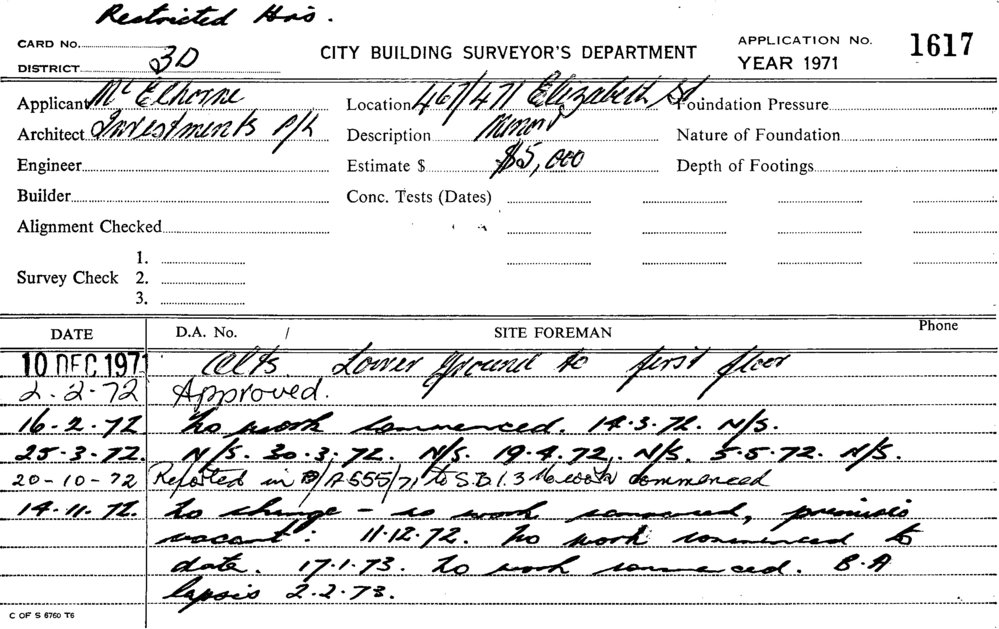 Restricted Hrs.
CARD No. CITY BUILDING SURVEYOR'S DEPARTMENT APPLICATION No. 1617
DISTRICT 3D YEAR 1971
Applicant McElhorne Location 467/471 Elizabeth St Foundation Pressure
Architect Investments P/L Description Minor Nature of Foundation
Engineer Estimate $ $5,000 Depth of Footings
Builder Conc. Tests (Dates)
Alignment Checked
1.
Survey Check 2.
3.
DATE D.A. No. / SITE FOREMAN Phone
10 DEC 1971 Alts Lower ground to first floor
2.2.72 Approved.
16.2.72 No work commenced. 14.3.72. N/S.
25.3.72. N/S. 30.3.72. N/S. 19.4.72. N/S. 5.5.72. N/S.
20-10-72 Reported in B/A 555/71 to S.B.I. 3 No work commenced
14.11.72. No change - no work commenced, premises
vacant. 11.12.72. No work commenced to
date. 17.1.73. No work commenced. B.A
lapsis 2.2.73.
C OF S 6760 T6